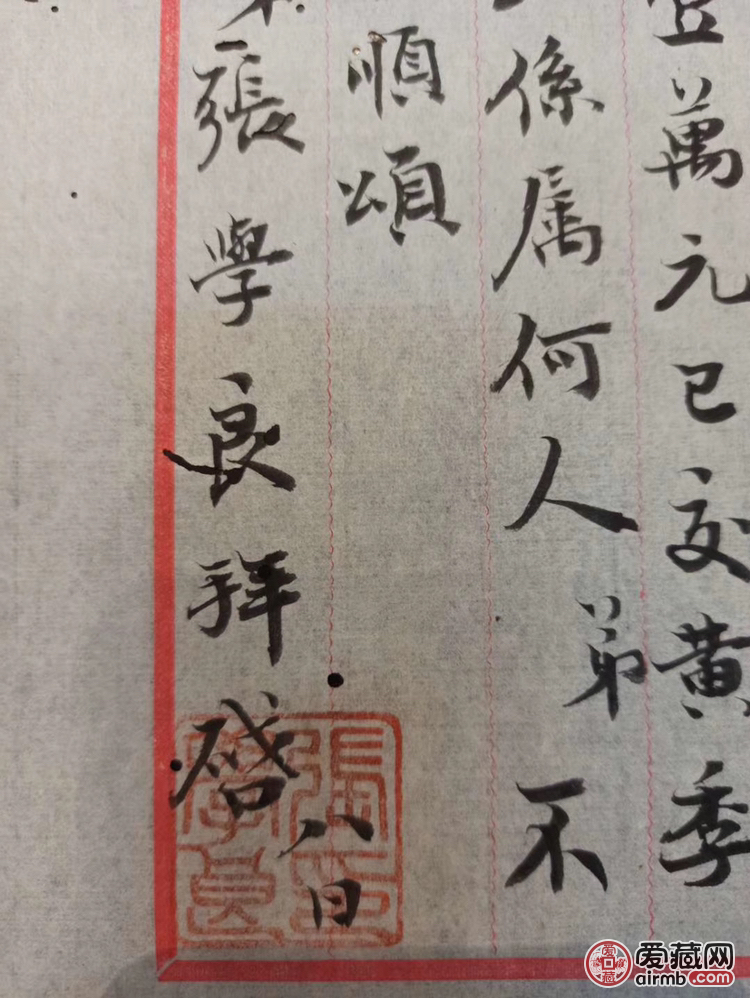 萬元已交黄季
係属何人弟不
順頌
張學良拜啓
八日
張印
學良
爱藏网
airmb.com